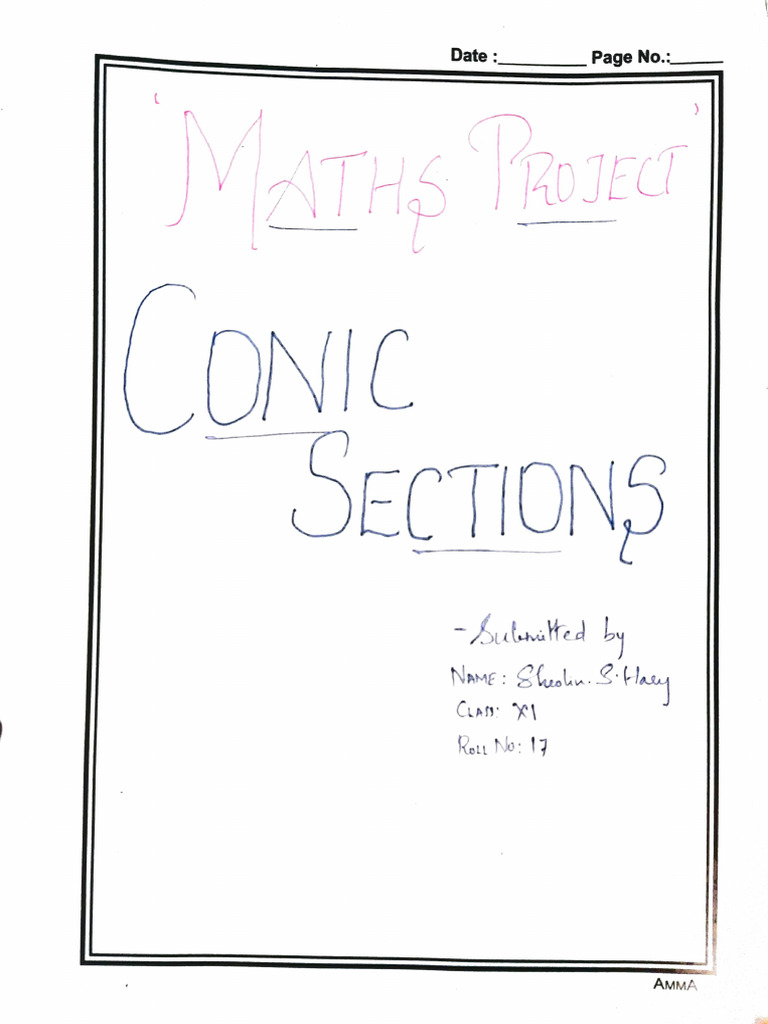 Date :__________ Page No.:______
'MATHS PROJECT'
CONIC
SECTIONS
- Submitted by
NAME: S. 
CLASS: XI
ROLL NO: 17
AMMA